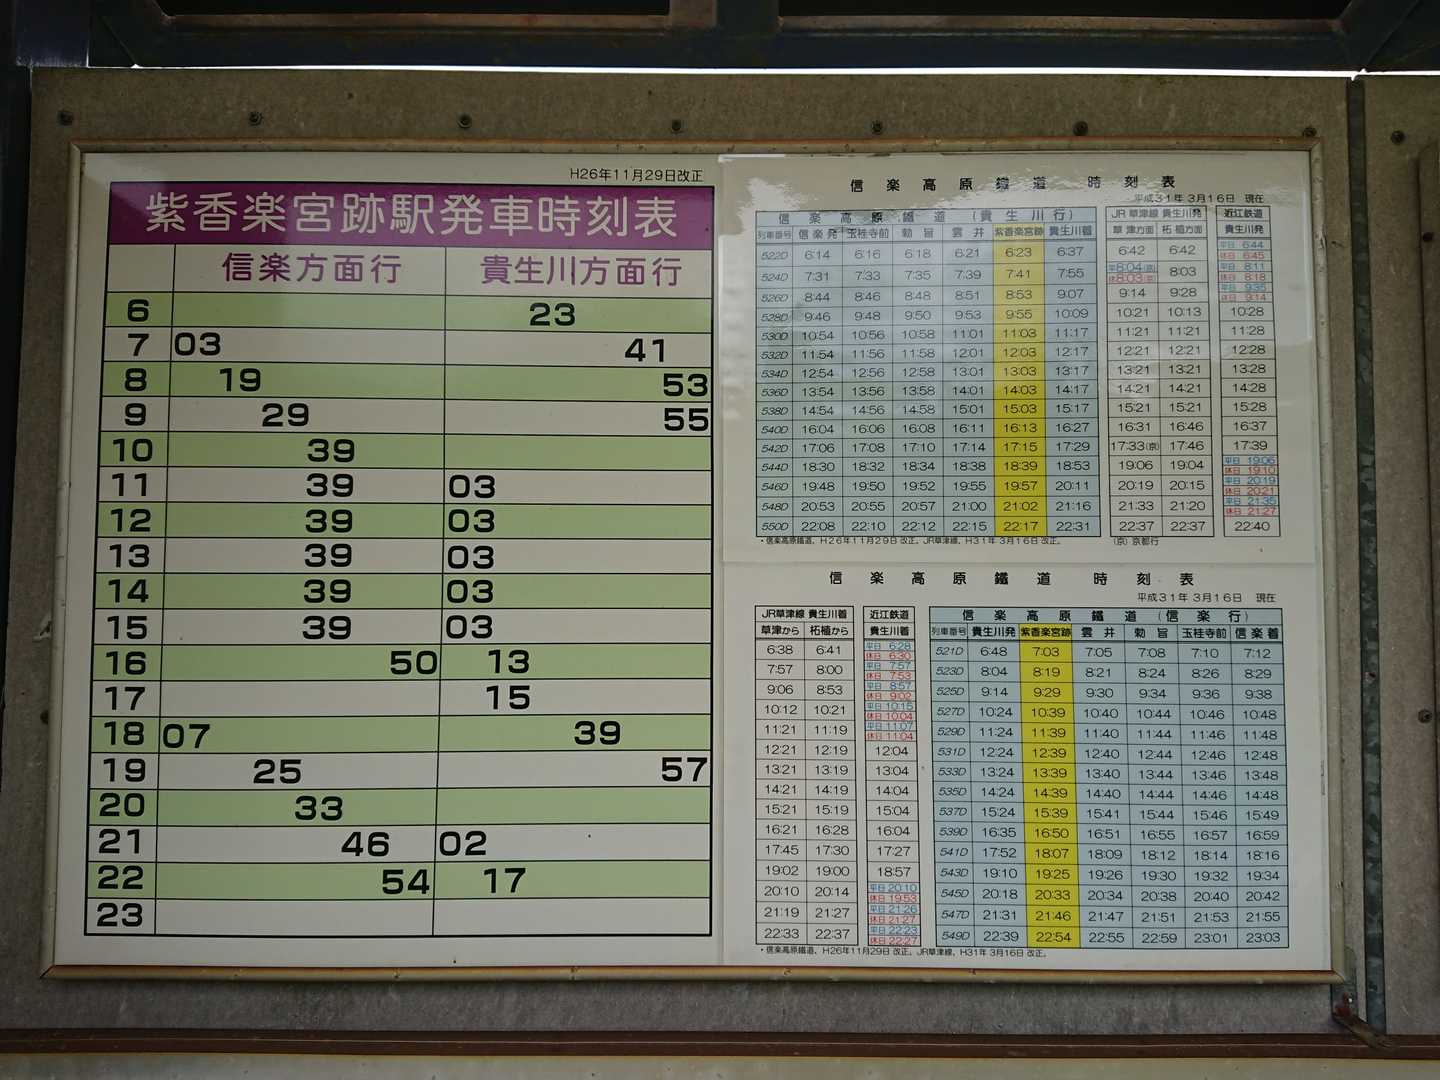 H26年11月29日改正
紫香楽宮跡駅発車時刻表
信楽方面行 貴生川方面行
6 23
7 03 41
8 19 53
9 29 55
10 39
11 39 03
12 39 03
13 39 03
14 39 03
15 39 03
16 50 13
17 15
18 07 39
19 25 57
20 33
21 46 02
22 54 17
23
信楽高原鐵道 時刻表
平成31年3月16日 現在
信楽高原鐵道(貴生川行) JR草津線 貴生川発 近江鉄道
列車番号 信楽発 玉桂寺前 勅旨 雲井 紫香楽宮跡 貴生川着 草津方面 柘植方面 貴生川発
522D 6:14 6:16 6:18 6:21 6:23 6:37 6:42 6:42 平日 6:44 休日 6:45
524D 7:31 7:33 7:35 7:39 7:41 7:55 平8:04(京) 休8:03(京) 8:03 平日 8:11 休日 8:18
526D 8:44 8:46 8:48 8:51 8:53 9:07 9:14 9:28 平日 9:35 休日 9:14
528D 9:46 9:48 9:50 9:53 9:55 10:09 10:21 10:13 10:28
530D 10:54 10:56 10:58 11:01 11:03 11:17 11:21 11:21 11:28
532D 11:54 11:56 11:58 12:01 12:03 12:17 12:21 12:21 12:28
534D 12:54 12:56 12:58 13:01 13:03 13:17 13:21 13:21 13:28
536D 13:54 13:56 13:58 14:01 14:03 14:17 14:21 14:21 14:28
538D 14:54 14:56 14:58 15:01 15:03 15:17 15:21 15:21 15:28
540D 16:04 16:06 16:08 16:11 16:13 16:27 16:31 16:46 16:37
542D 17:06 17:08 17:10 17:14 17:15 17:29 17:33(京) 17:46 17:39
544D 18:30 18:32 18:34 18:38 18:39 18:53 19:06 19:04 平日 19:06 休日 19:10
546D 19:48 19:50 19:52 19:55 19:57 20:11 20:19 20:15 平日 20:19 休日 20:21
548D 20:53 20:55 20:57 21:00 21:02 21:16 21:33 21:20 平日 21:35 休日 21:27
550D 22:08 22:10 22:12 22:15 22:17 22:31 22:37 22:37 22:40
・信楽高原鐵道、H26年11月29日 改正。JR草津線、H31年 3月16日 改正。 (京) 京都行
信楽高原鐵道 時刻表
平成31年3月16日 現在
JR草津線 貴生川着 近江鉄道 信楽高原鐵道(信楽行)
草津から 柘植から 貴生川着 列車番号 貴生川発 紫香楽宮跡 雲井 勅旨 玉桂寺前 信楽着
6:38 6:41 平日 6:28 休日 6:30 521D 6:48 7:03 7:05 7:08 7:10 7:12
7:57 8:00 平日 7:57 休日 7:53 523D 8:04 8:19 8:21 8:24 8:26 8:29
9:06 8:53 平日 8:57 休日 9:02 525D 9:14 9:29 9:30 9:34 9:36 9:38
10:12 10:21 平日 10:15 休日 10:04 527D 10:24 10:39 10:40 10:44 10:46 10:48
11:21 11:19 平日 11:07 休日 11:04 529D 11:24 11:39 11:40 11:44 11:46 11:48
12:21 12:19 12:04 531D 12:24 12:39 12:40 12:44 12:46 12:48
13:21 13:19 13:04 533D 13:24 13:39 13:40 13:44 13:46 13:48
14:21 14:19 14:04 535D 14:24 14:39 14:40 14:44 14:46 14:48
15:21 15:19 15:04 537D 15:24 15:39 15:41 15:44 15:46 15:49
16:21 16:28 16:04 539D 16:35 16:50 16:51 16:55 16:57 16:59
17:45 17:30 17:27 541D 17:52 18:07 18:09 18:12 18:14 18:16
19:02 19:00 18:57 543D 19:10 19:25 19:26 19:30 19:32 19:34
20:10 20:14 平日 20:10 休日 19:53 545D 20:18 20:33 20:34 20:38 20:40 20:42
21:19 21:27 平日 21:26 休日 21:27 547D 21:31 21:46 21:47 21:51 21:53 21:55
22:33 22:37 平日 22:23 休日 22:27 549D 22:39 22:54 22:55 22:59 23:01 23:03
・信楽高原鐵道、H26年11月29日 改正。JR草津線、H31年 3月16日 改正。